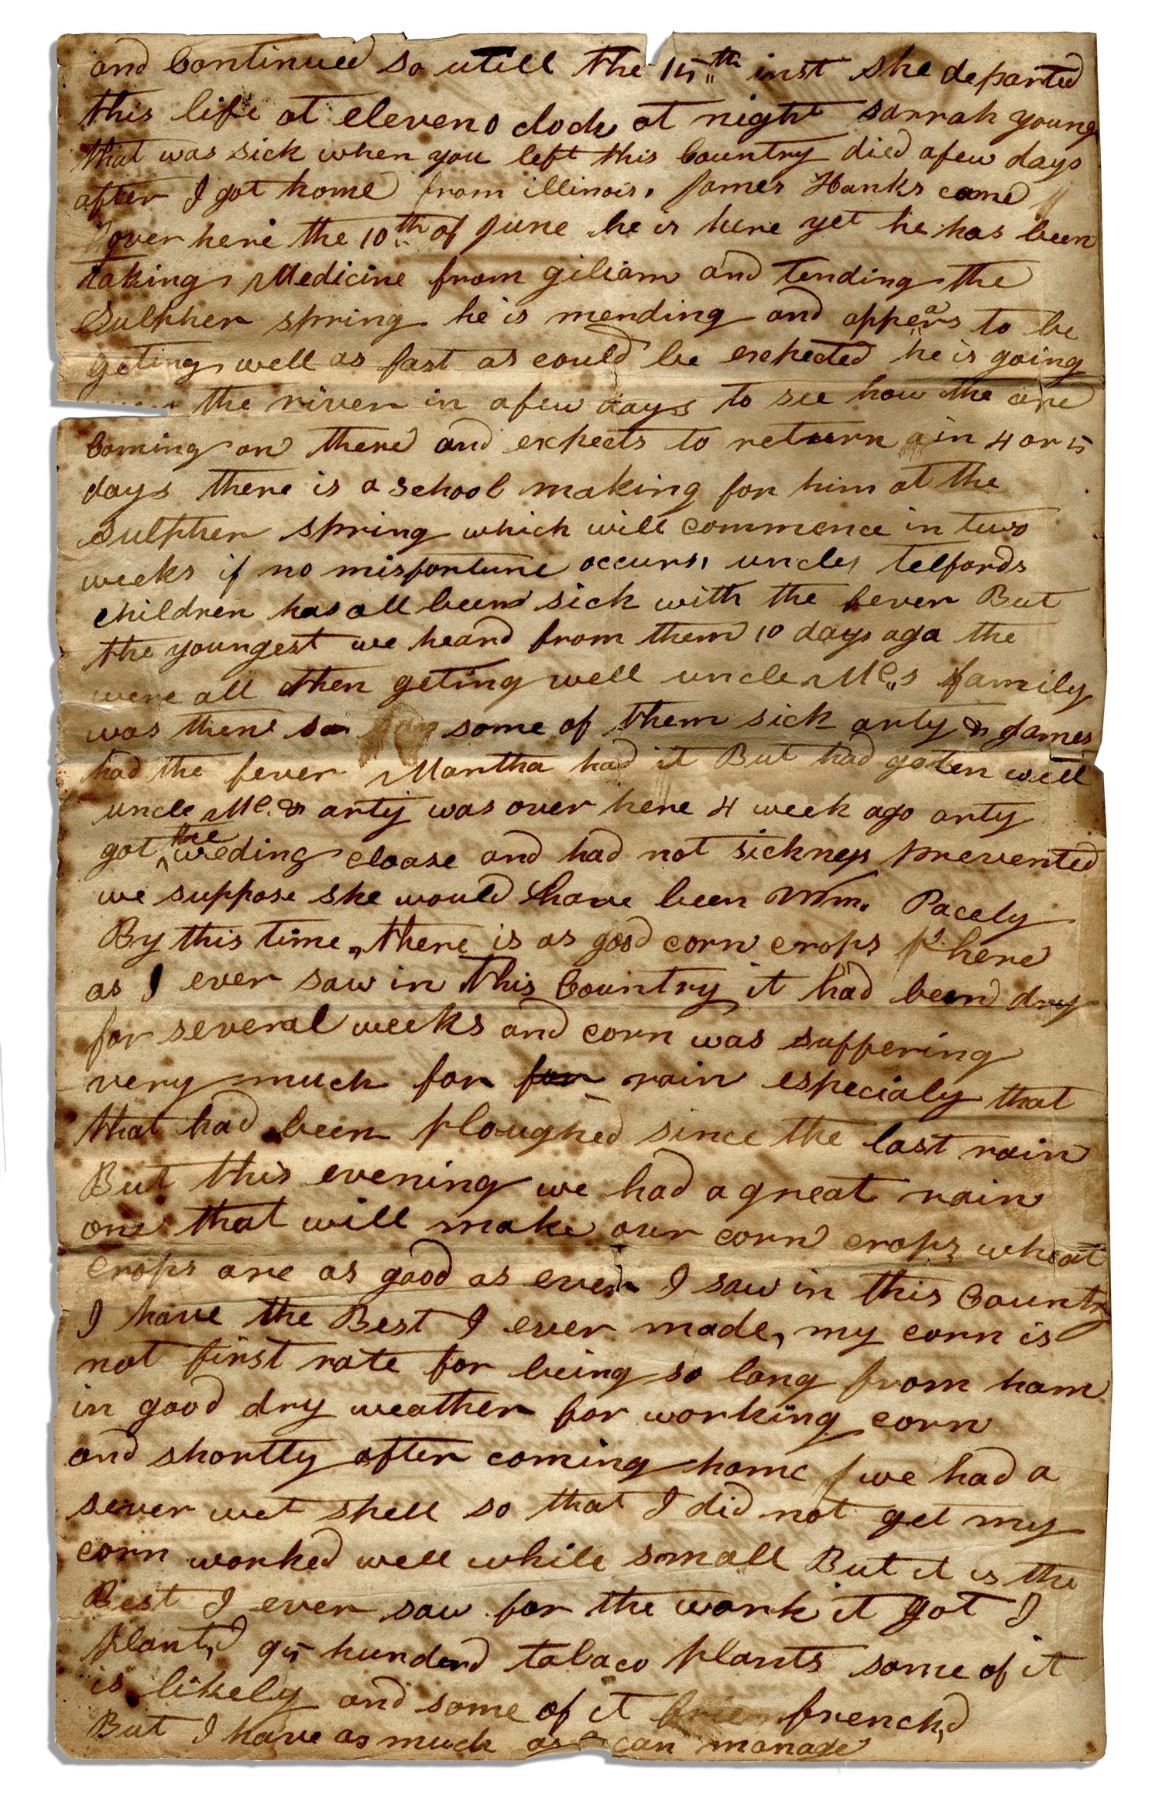 and Continued so utill the 15th inst she departed
this life at eleven o clock at night sarrah young
that was sick when you left this Country died afew days
after I got home from illinois, James Hanks came
over here the 10th of June he is here yet he has been
taking Medicine from giliam and tending the
Sulpher spring he is mending and appears to be
geting well as fast as could be expected he is going
the river in afew days to see how the are
Coming on there and expects to return ain 4 or 5
days there is a school making for him at the
sulpher spring which will commence in two
weeks if no misfortune occurs, uncles telfords
children has all been sick with the fever But
the youngest we heard from them 10 days aga the
were all then geting well uncle Mc,,s family
was then so some of them sick arty & James
had the fever Martha had it But had goten well
uncle Mc. & arty was over here 4 week ago arty
got the weding cloase and had not sickness prevented
we suppose she would have been Wm. Pacely
By this time, there is as good corn crops here
as I ever saw in this Country it had been dry
for several weeks and corn was suffering
very much for for rain especialy that
that had been ploughed since the last rain
But this evening we had a great rain
one that will make our corn crops wheat
crops are as good as ever I saw in this Country
I have the Best I ever made, my corn is
not first rate for being so long from hom
in good dry weather for working corn
and shortly after coming home we had a
sever wet shell so that I did not get my
corn worked well while small But it is the
Best I ever saw for the work it got I
plant,d 95 hunderd tabaco plants some of it
is likely and some of it french,d
But I have as much as can manage